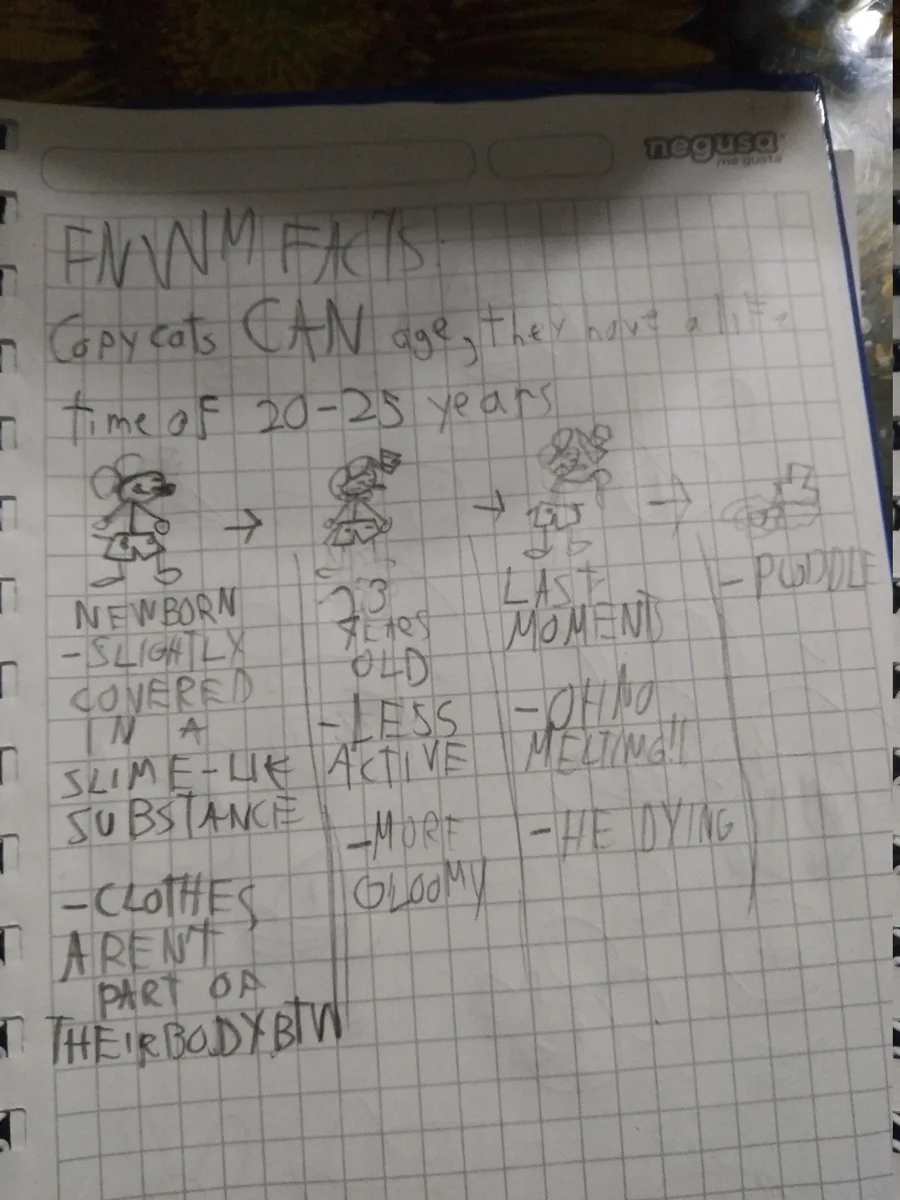 negusa
me gusta
FNWM FACTS:
Copycats CAN age, they have a life
time of 20-25 years
NEWBORN
-SLIGHTLY
COVERED
IN A
SLIME-LIKE
SUBSTANCE
-CLOTHES
AREN'T
PART OF
THEIR BODY BTW
23
YEARS
OLD
-LESS
ACTIVE
-MORE
GLOOMY
LAST
MOMENTS
-OH NO
MELTING!!
-HE DYING
-PUDDLE